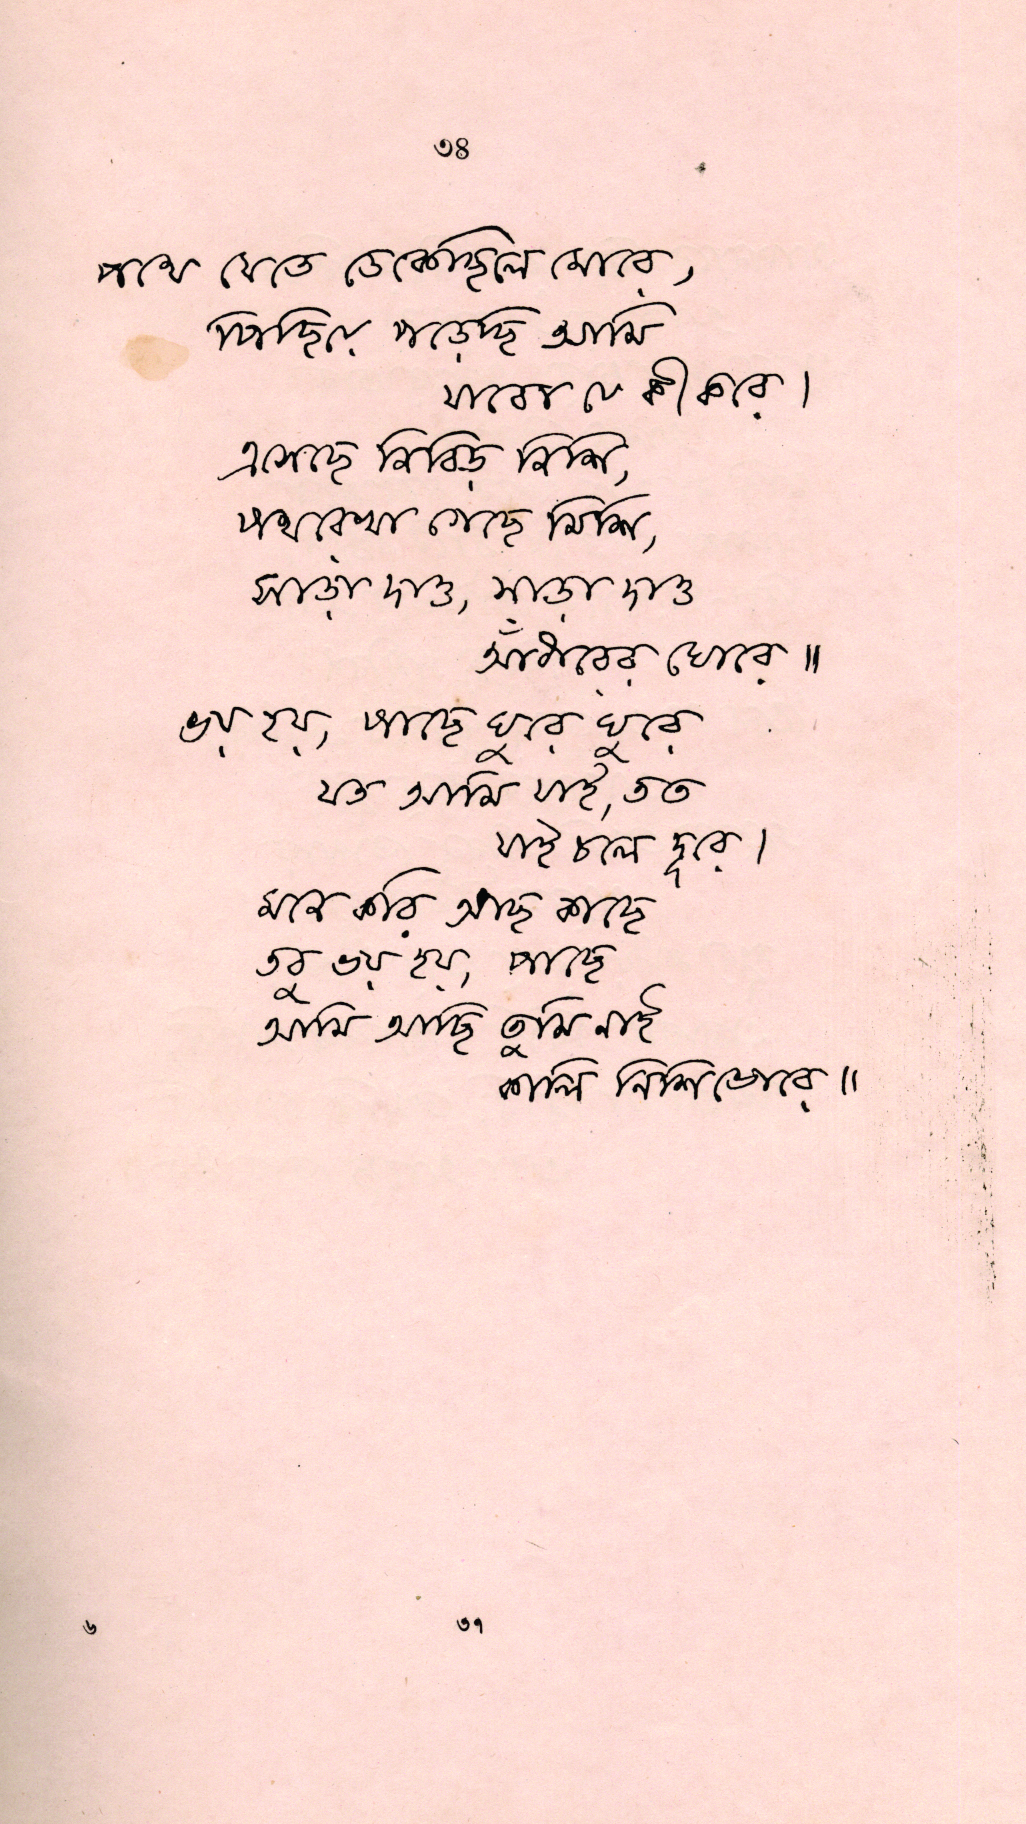 ৩৪
পথে যেতে ডেকেছিলে মোরে,
পিছিয়ে পড়েছি আমি
যাবো যে কী করে।
এসেছে নিবিড় নিশি,
পথরেখা গেছে মিশি,
সাড়া দাও, সাড়া দাও
আঁধারের ঘোরে॥
ভয় হয়, পাছে ঘুরে ঘুরে
যত আমি যাই, তত
যাই চলে দূরে।
মনে করি আছ কাছে
তবু ভয় হয়, পাছে
আমি আছি তুমি নাই
কালি নিশিভোরে॥
৬ ৩৭